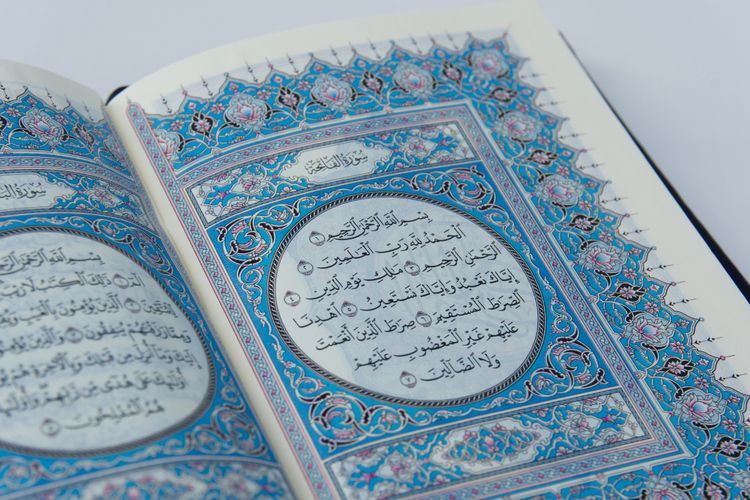 سُورَةُ الْفَاتِحَةِ
بِسْمِ ٱللَّهِ ٱلرَّحْمَٰنِ ٱلرَّحِيمِ ١
ٱلْحَمْدُ لِلَّهِ رَبِّ ٱلْعَٰلَمِينَ ٢
ٱلرَّحْمَٰنِ ٱلرَّحِيمِ ٣ مَٰلِكِ يَوْمِ ٱلدِّينِ ٤
إِيَّاكَ نَعْبُدُ وَإِيَّاكَ نَسْتَعِينُ ٥ ٱهْدِنَا
ٱلصِّرَٰطَ ٱلْمُسْتَقِيمَ ٦ صِرَٰطَ ٱلَّذِينَ أَنْعَمْتَ
عَلَيْهِمْ غَيْرِ ٱلْمَغْضُوبِ عَلَيْهِمْ
وَلَا ٱلضَّآلِّينَ ٧
سُورَةُ
بِسْمِ ٱللَّهِ ٱلرَّحْمَٰنِ ٱلرَّحِيمِ
الٓمٓ ١ ذَٰلِكَ ٱلْكِتَٰبُ لَا رَيْبَ
لِّلْمُتَّقِينَ ٢ ٱلَّذِينَ يُؤْمِنُونَ بِٱلْغَيْبِ
وَمِمَّا رَزَقْنَٰهُمْ يُنفِقُونَ ٣ وَٱلَّذِينَ يُؤْمِنُونَ
إِلَيْكَ وَمَآ أُنزِلَ مِن قَبْلِكَ وَبِٱلْآخِرَةِ هُمْ
أُو۟لَٰٓئِكَ عَلَىٰ هُدًى مِّن رَّبِّهِمْ وَأُو۟لَٰٓئِكَ
هُمُ ٱلْمُفْلِحُونَ ٥